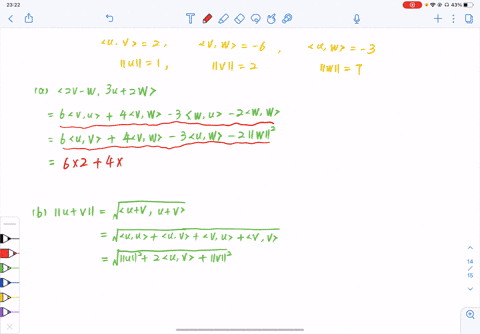 23:22
43%
<u, V> = 2, <V, W> = -6, <u, W> = -3
||u|| = 1, ||V|| = 2 ||W|| = 7
(a) <2V-W, 3u+2W>
= 6<V,u> + 4<V,W> - 3<W,u> - 2<W,W>
= 6<u,V> + 4<V,W> - 3<u,W> - 2||W||²
= 6×2 + 4×
(b) ||u+V|| = √<u+V, u+V>
= √<u,u> + <u,V> + <V,u> + <V,V>
= √||u||² + 2<u,V> + ||V||²
14
/
15